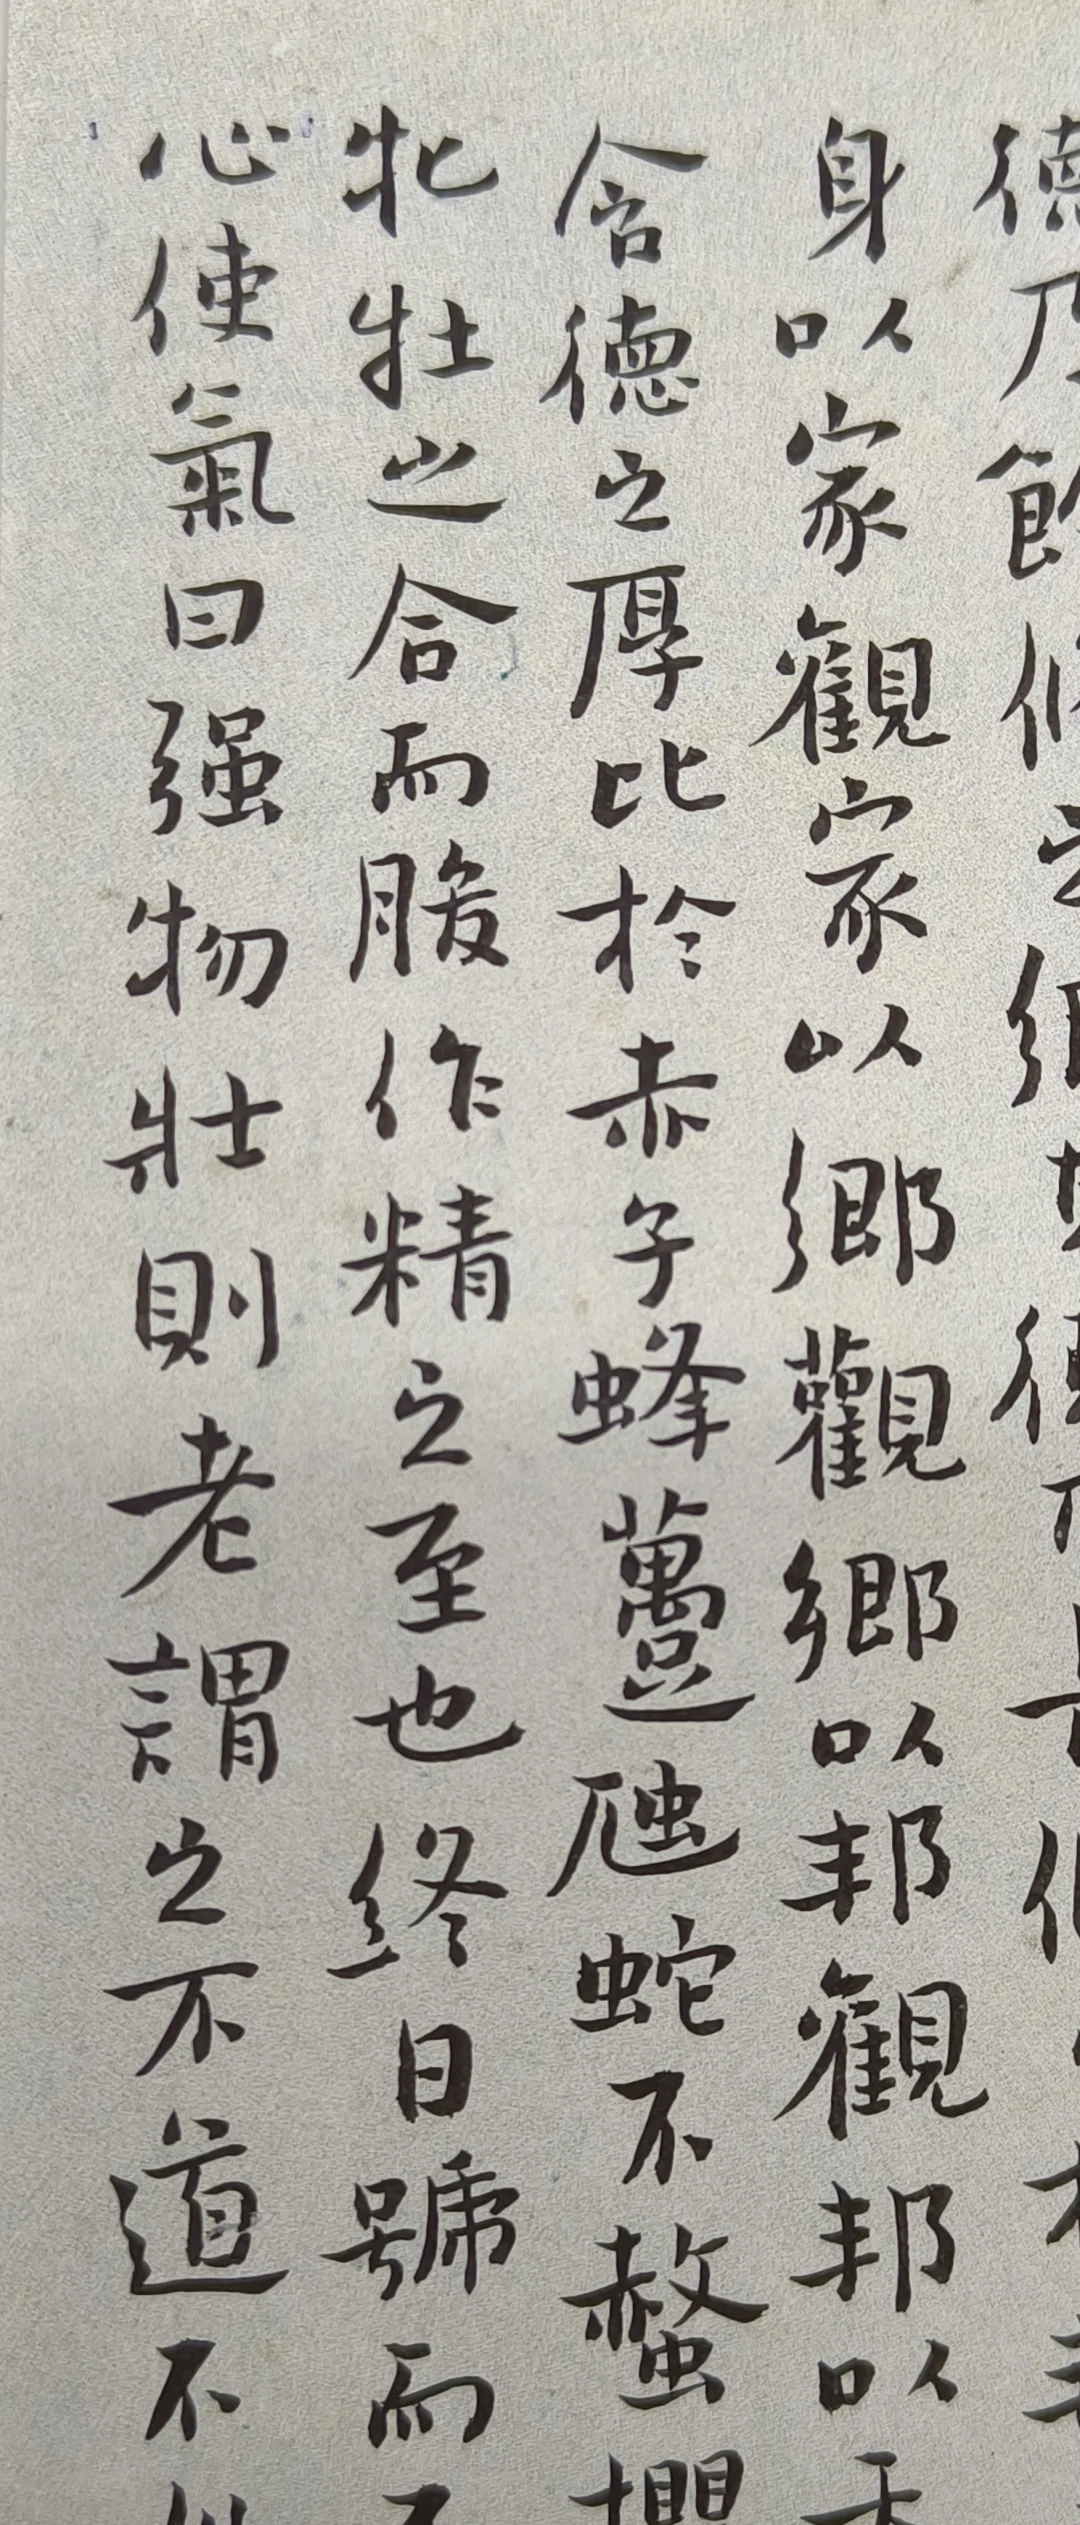 德乃餘修之鄉其德乃長修
身以家觀家以鄉觀鄉以邦觀邦以天
含德之厚比於赤子蜂蠆虺蛇不螫攫
牝牡之合而朘作精之至也終日號而不
心使氣曰强物壯則老謂之不道不